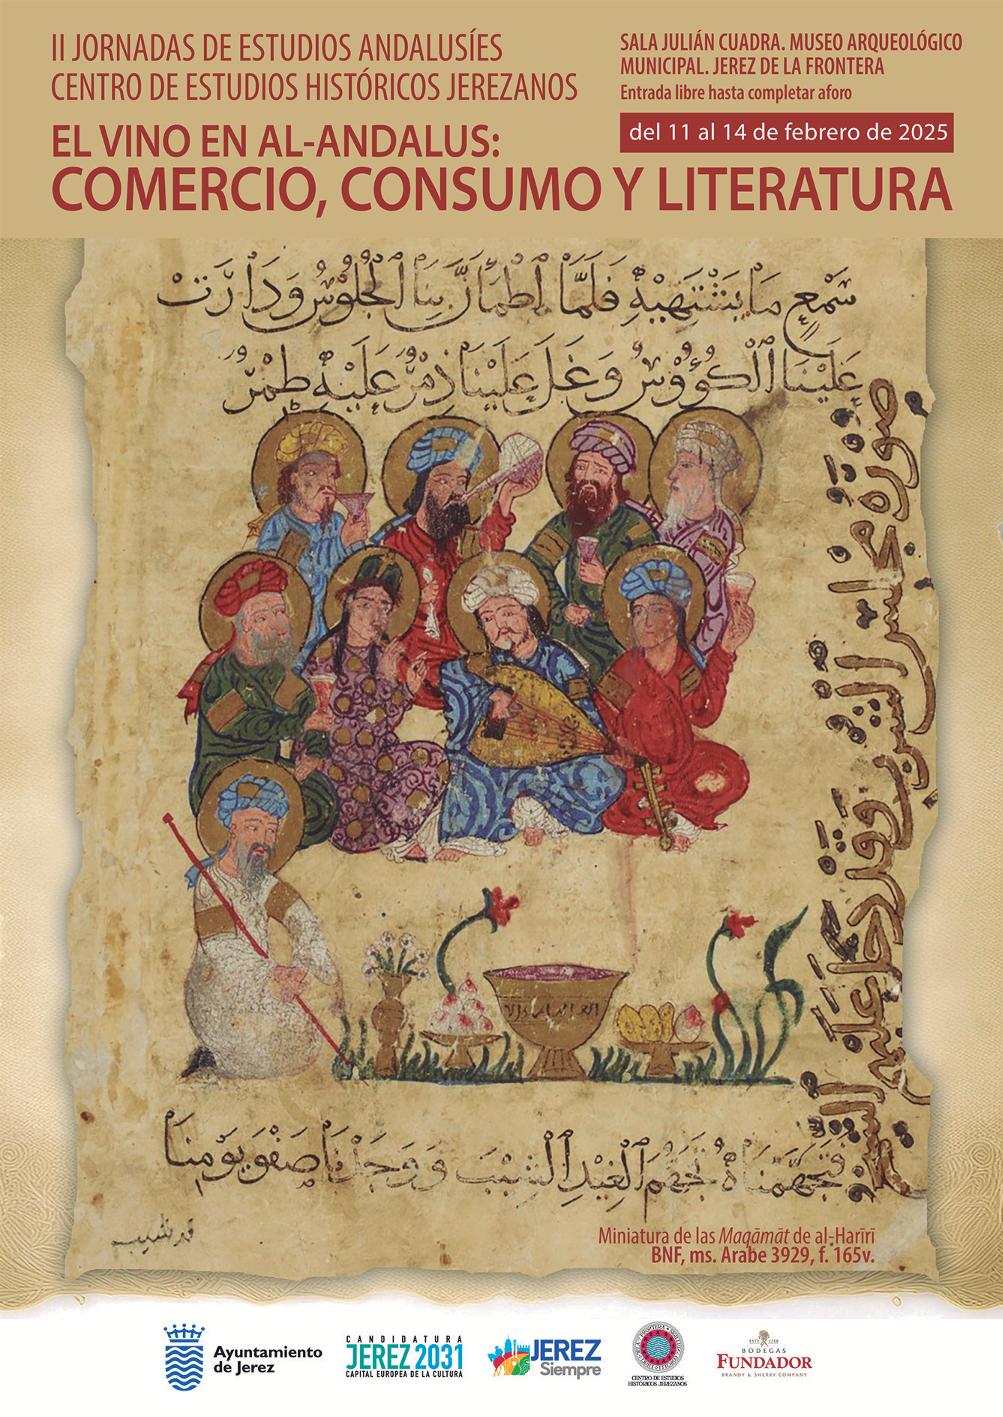 II JORNADAS DE ESTUDIOS ANDALUSÍES
CENTRO DE ESTUDIOS HISTÓRICOS JEREZANOS
EL VINO EN AL-ANDALUS:
COMERCIO, CONSUMO Y LITERATURA
SALA JULIÁN CUADRA. MUSEO ARQUEOLÓGICO
MUNICIPAL. JEREZ DE LA FRONTERA
Entrada libre hasta completar aforo
del 11 al 14 de febrero de 2025
سَمْعٍ مَا يَشْتَهِيهِ فَلَمَّا اطْمَأَنَّ بِنَا الْجُلُوسُ وَدَارَتْ
عَلَيْنَا الْكُؤُوسُ وَغَلَ عَلَيْنَا ذِمْرٌ عَلَيْهِ طِمْرٌ
صورة مجلس الشرب وقد دخل عليهم الشيخ
فَتَجَهَّمْنَاهُ تَجَهُّمَ الْغِيدِ الشِّيبَ وَوَجَدْنَا صَفْوَ يَوْمِنَا
قد شيب
Miniatura de las Maqāmāt de al-Harīrī
BNF, ms. Arabe 3929, f. 165v.
Ayuntamiento
de Jerez
CANDIDATURA
JEREZ 2031
CAPITAL EUROPEA DE LA CULTURA
JEREZ
Siempre
CENTRO DE ESTUDIOS
HISTÓRICOS JEREZANOS
BODEGAS
FUNDADOR
BRANDY & SHERRY COMPANY